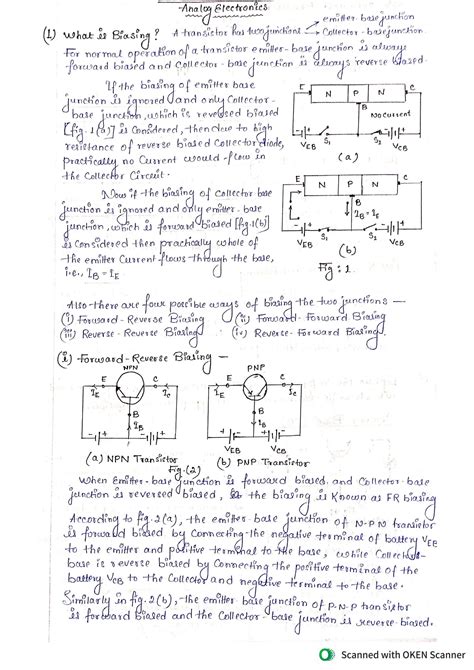 Analog Electronics
(1) What is Biasing? A transistor has two junctions
emitter-base junction
Collector-base junction
For normal operation of a transistor emitter-base junction is always
forward biased and Collector-base junction is always reverse biased.
If the biasing of emitter base
junction is ignored and only Collector-
base junction, which is reversed biased
[fig-1(a)] is Considered, then due to high
resistance of reverse biased Collector diode,
practically no Current would flow in
the Collector Circuit.
E N P N C
B
No current
S1 S2
VEB VCB
(a)
Now if the biasing of Collector-base
junction is ignored and only emitter-base
junction, which is forward biased [fig-1(b)]
is Considered then practically whole of
the emitter Current flows through the base,
i.e., IB = IE
E N P N C
B
IB = IE
S1 S2
VEB VCB
(b)
Fig: 1
Also there are four possible ways of biasing the two junctions —
(i) Forward-Reverse Biasing (ii) Forward-Forward Biasing
(iii) Reverse-Reverse Biasing (iv) Reverse-Forward Biasing.
(i) Forward-Reverse Biasing —
NPN PNP
E C E C
IE IC IE IC
B B
IB IB
VEB VCB
(a) NPN Transistor (b) PNP Transistor
Fig-(2)
When Emitter-base junction is forward biased and Collector-base
junction is reversed biased, the biasing is Known as FR biasing
According to fig-2(a), the emitter-base junction of N-P-N transistor
is forward biased by Connecting the negative terminal of battery VEE
to the emitter and positive terminal to the base, while Collector-
base is reverse biased by Connecting the positive terminal of the
battery VCB to the Collector and negative terminal to the base.
Similarly in fig-2(b), the emitter base junction of P-N-P transistor
is forward biased and the Collector-base junction is reverse biased.
Scanned with OKEN Scanner